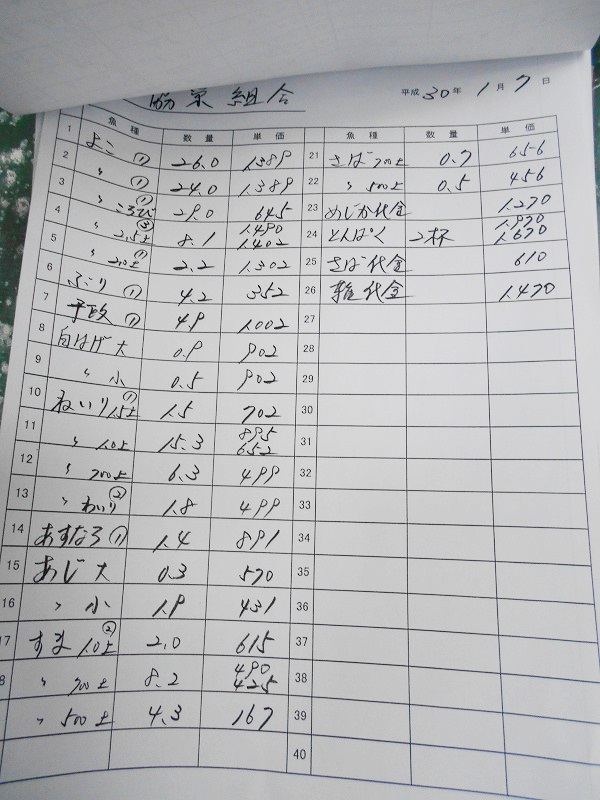 協栄組合
平成 30年 1月 7日
魚種 数量 単価 魚種 数量 単価
1 よこ ① 26.0 1.389
2 〃 ① 24.0 1.389
3 〃 ころび ① 29.0 645
4 〃 2.5上 ② 8.1 1.490 1.402
5 〃 2.0上 ① 2.2 1.302
6 ぶり ① 4.2 352
7 ① 4.9 1.002
8 白はげ 大 0.9 902
9 〃 小 0.5 902
10 ねいり 1.5上 ① 1.5 702
11 〃 1.0上 15.3 895 652
12 〃 700上 6.3 499
13 〃 ② 1.8 499
14 あすなろ ① 1.4 891
15 あじ 大 0.3 570
16 〃 小 1.9 431
17 すま 1.0上 ② 2.0 615
8 〃 700上 8.2 490 425
〃 500上 4.3 167
21 さば 700上 0.7 656
22 〃 500上 0.5 456
23 めじか代金 1.270
24 とんぱく 2杯 1.970 1.670
25 さば代金 610
26 代金 1.470
27
28
29
30
31
32
33
34
35
36
37
38
39
40